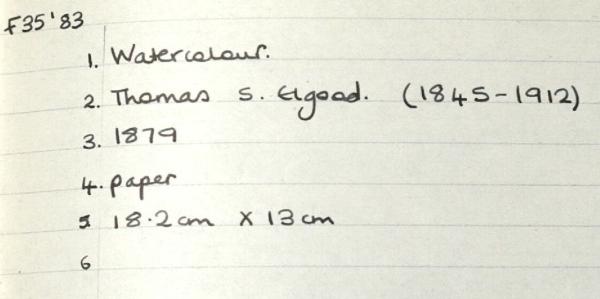 F35'83
1. Watercolour.
2. Thomas S. Elgood. (1845-1912)
3. 1879
4. paper
5 18.2cm x 13cm
6